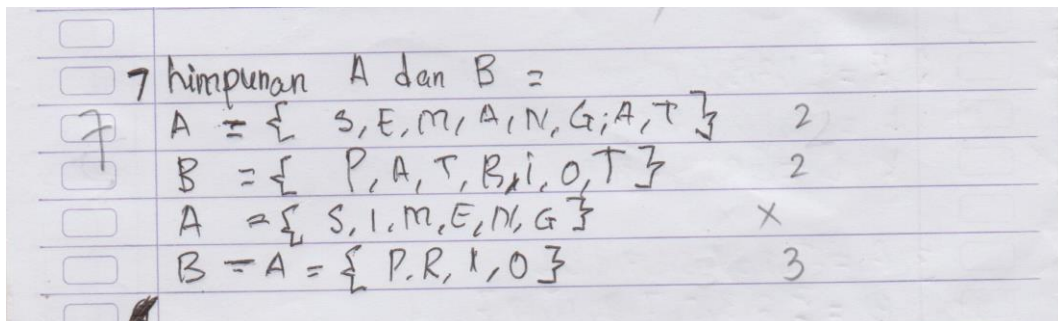 7 himpunan A dan B =
7 A = { S, E, M, A, N, G, A, T } 2
B = { P, A, T, R, i, O, T } 2
A = { S, I, M, E, N, G } ×
B - A = { P. R, I, O } 3